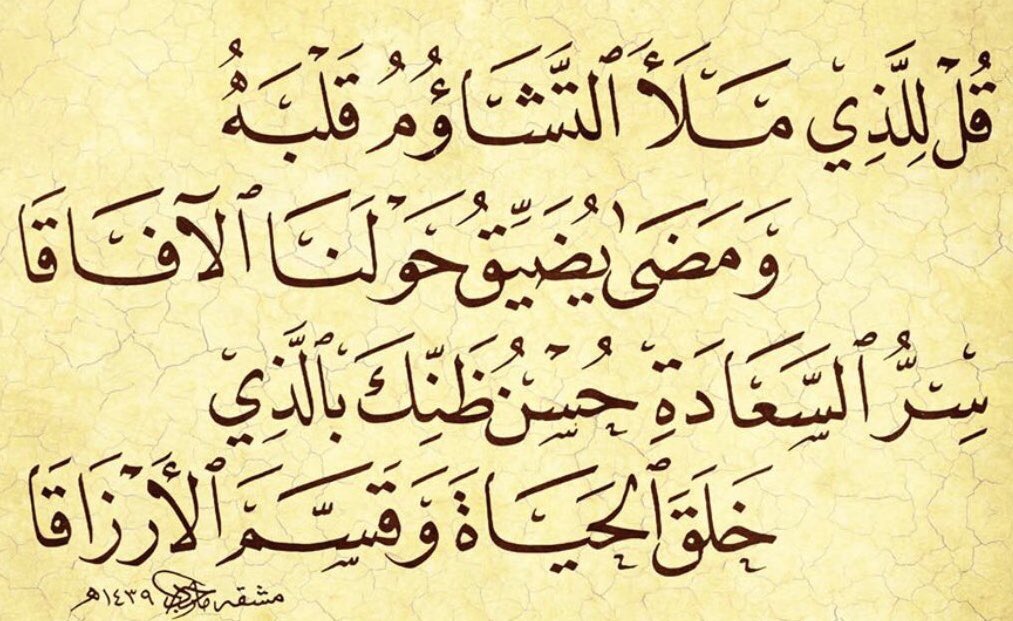 قُلْ لِلَّذِي مَلَأَ ٱلتَّشَاؤُمُ قَلْبَهُ
وَمَضَىٰ يُضَيِّقُ حَوْلَنَا ٱلآفَاقَا
سِرُّ ٱلسَّعَادَةِ حُسْنُ ظَنِّكَ بِٱلَّذِي
خَلَقَ ٱلْحَيَاةَ وَقَسَّمَ ٱلأَرْزَاقَا
مشقه ١٤٣٩هـ